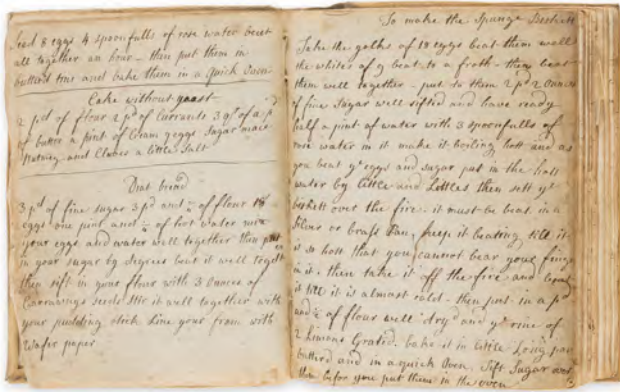 seed 8 eggs 4 spoonfulls of rose water beet
all together an hour - then put them in
butterd tins and bake them in a Quick Oven
Cake without yeast
2 pd of flour 2 pd of Currants 3 qr of a pd
of butter a pint of Cream 9 eggs Sugar mace
Nutmeg and Cloves a little Salt
Diat bread
3 pd of fine sugar 3 pd and of flour 18
eggs one pint and of hot water mix
your eggs and water well together then put
in your sugar by degrees beet it well togeth
then sift in your flour with 3 Ounces of
Carraways seeds Stir it well together with
your pudding stick Line your from with
Wafer paper
To make the Spunge Biskett
Take the yolks of 18 eggs beat them well
the whites of 9 beat to a froth - then beat
them well together - put to them 2 pd 2 Ounces
of fine Sugar well sifted and have ready
half a pint of water with 3 spoonfulls of
rose water in it make it boiling hott and as
you beat ye eggs and sugar put in the hott
water by little and Littles then sett ye
biskett over the fire. it must be beat in a
Silver or brass Pan, keep it beating till it
is so hott that you cannot bear your fing
in it. then take it off the fire and
it till it is almost cold. then put in a pd
and of flour well dryd and ye rine of
2 Limons Grated. bake it in little Long pan
butterd and in a quick Oven. Sift Sugar over
them before you put them in the oven